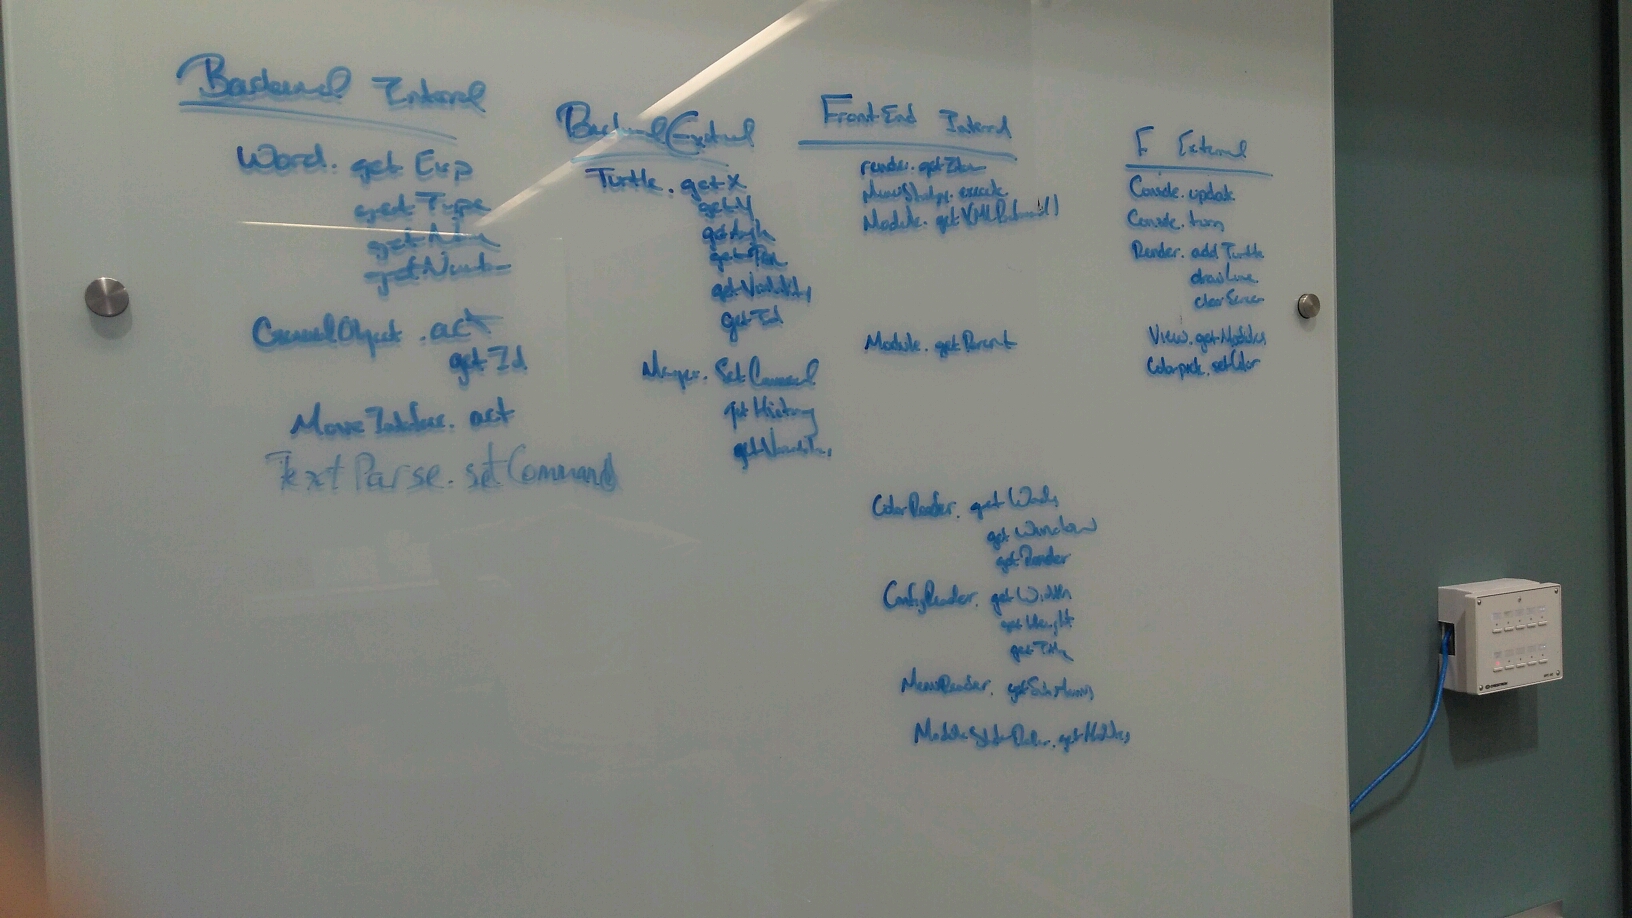 Backend Internal
Word. get Exp
get Type
get
General Object . act
get Id
Move Interface. act
Text Parse. setCommand
Backend External
Turtle. getX
getY
getAngle
getPen
getVisibility
getId
Manager. Set Command
getHistory
Front End Internal
render. getItem
execute
Module. getXMLParent()
Module. getParent
ColorReader. get
get Window
get Render
ConfigReader. getWidth
get Height
get Title
MenuReader. getSubMenus
getModules
F External
Console. update
Console. turn
Render. addTurtle
drawLine
clearScreen
View. getModules
Colorpick. setColor